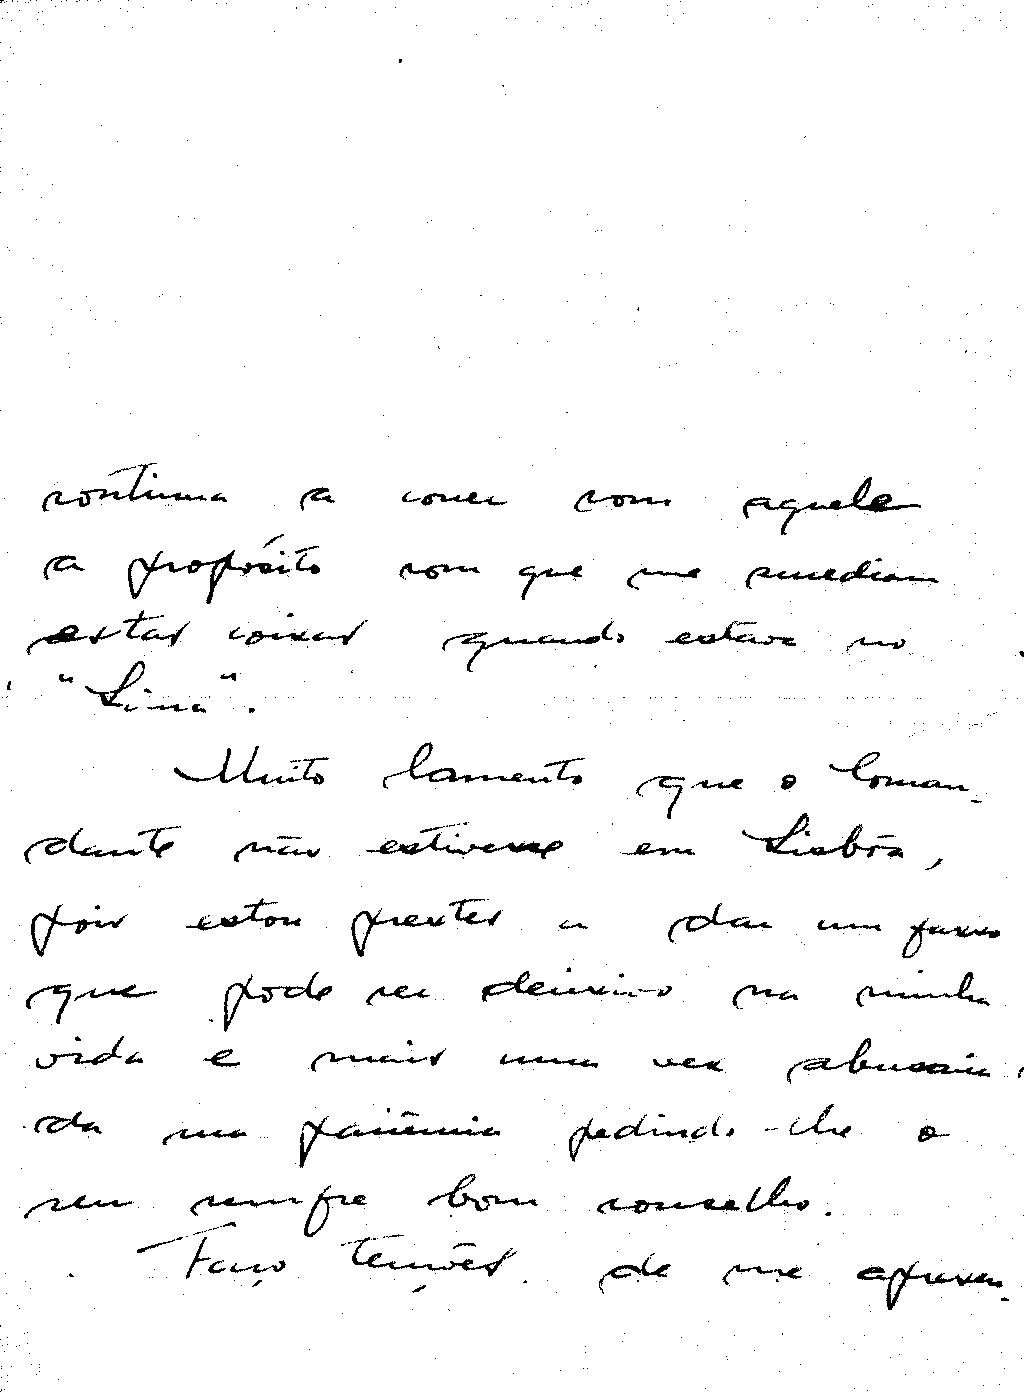 continua a correr com aquele
a propósito com que me sucediam
estas coisas quando estava no
"Lima".
Muito lamento que o Coman-
dante não estivesse em Lisbôa,
pois estou prestes a dar um passo
que pode ser decisivo na minha
vida e mais uma vez abusaria
da sua paciência pedindo-lhe o
seu sempre bom conselho.
Faço tenções de me apresen-